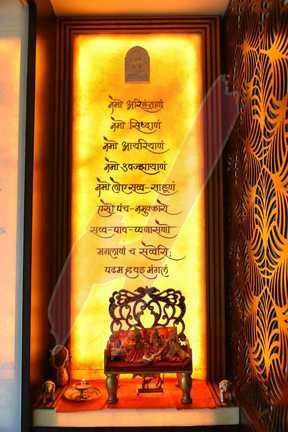 नमो अरिहंताणं
नमो सिध्दाणं
नमो आयरियाणं
नमो उवज्झायाणं
नमो लोए सव्व-साहूणं
एसो पंच-नमुक्कारो
सव्व-पाव-प्पणासणो
मंगलाणं च सव्वेसिं;
पढम हवइ मंगलं